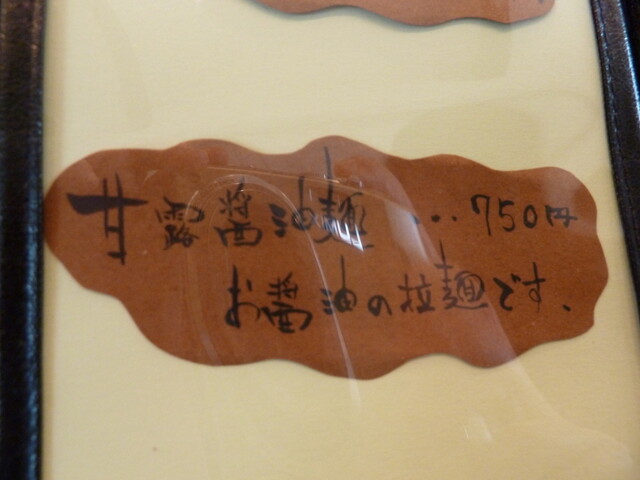 醤油麺 ... 750円
お醤油の拉麺です.